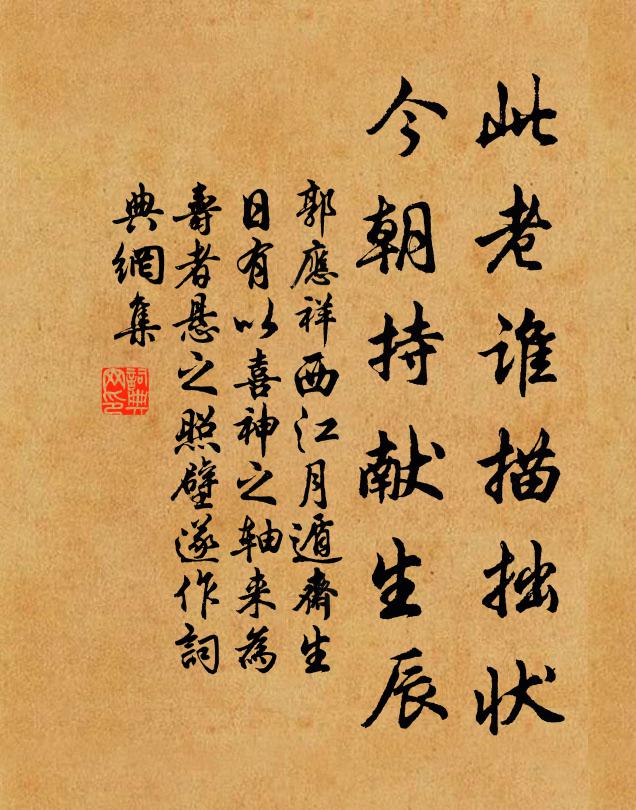 此老谁描拙状
今朝持献生辰
郭應祥西江月遁齋生
日有以喜神之轴来為
壽者悬之照壁遂作詞
典網集
詞典
网印